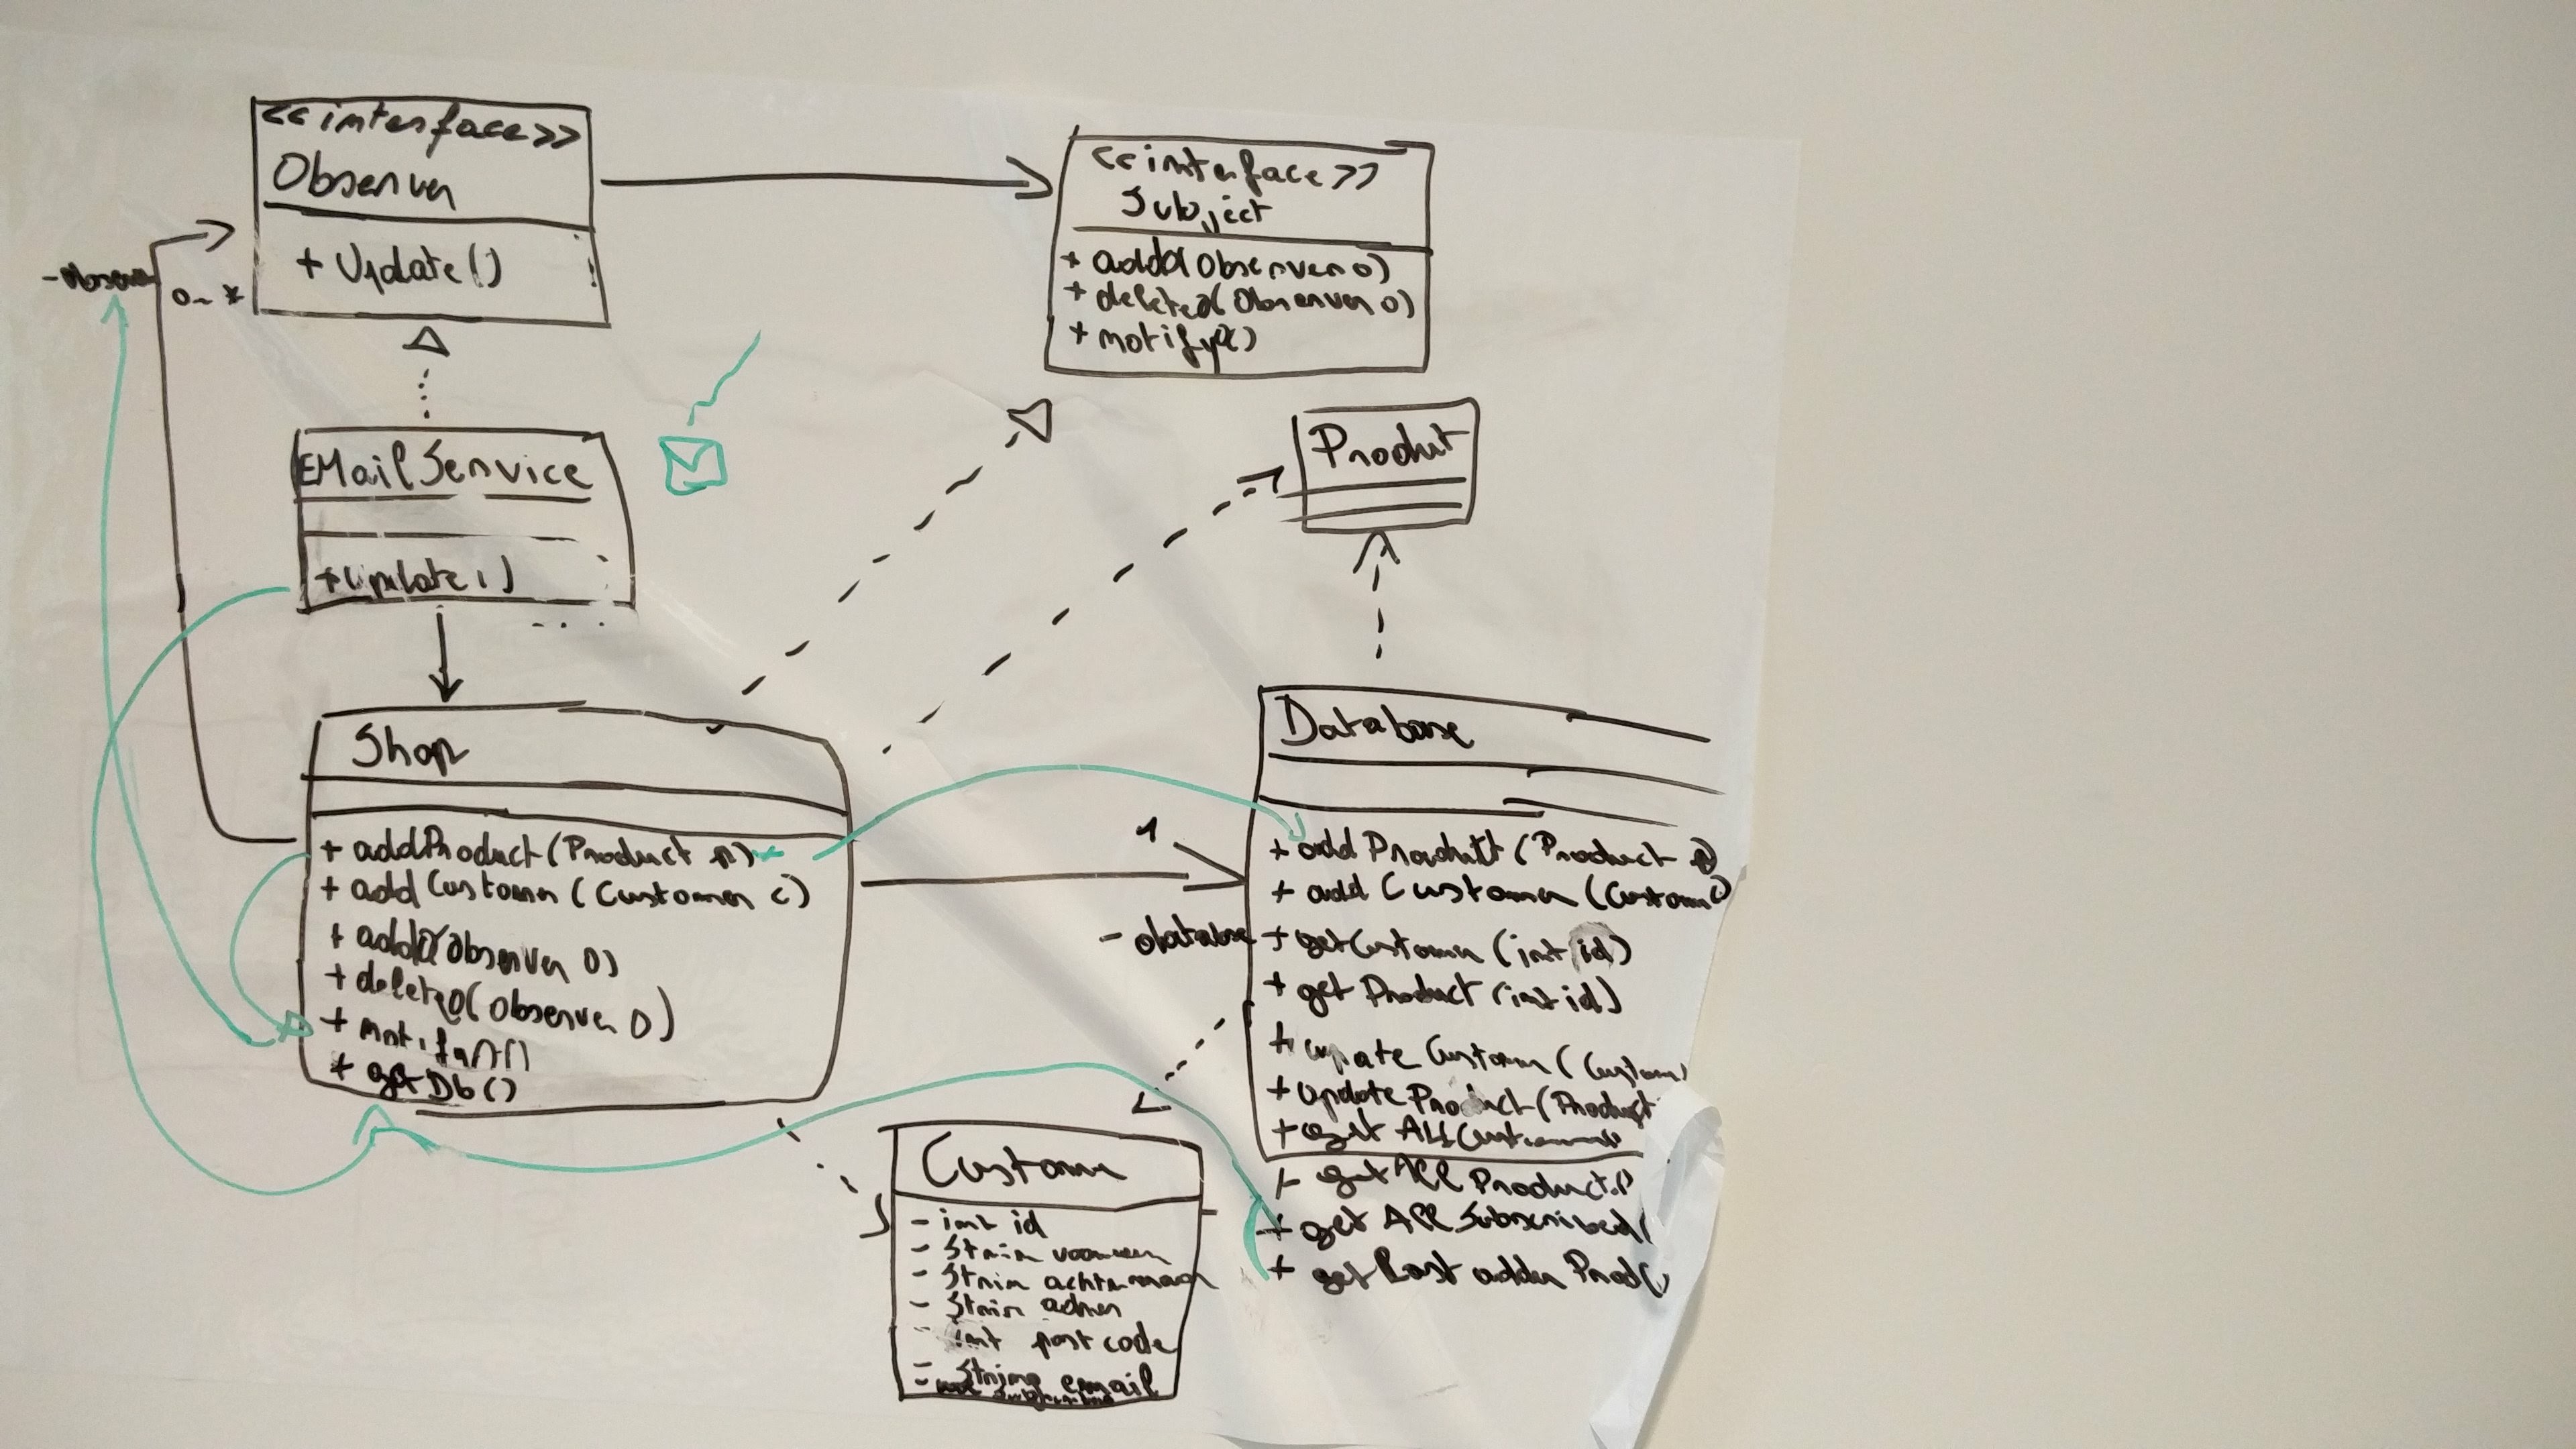 <<interface>>
Observer
+ Update()
- Observer
0..*
<<interface>>
Subject
+ addO(Observer o)
+ deleteO(Observer o)
+ notifyO()
EMailService
+ update()
Product
Shop
+ addProduct(Product p)
+ addCustomer(Customer c)
+ addO(Observer O)
+ deleteO(Observer O)
+ getDb()
1
- database
Database
+ addProduct(Product p)
+ addCustomer(Customer
+ getCustomer(int id)
+ getProduct(int id)
+ upate Customer(Custom
+ update Product(Product
+ get All
+ get All Product
+ get All Subscribed(
+ get Last added Prod()
Customer
- int id
- Strin
- Strin achternaam
- Strin adres
- int postcode
- String email